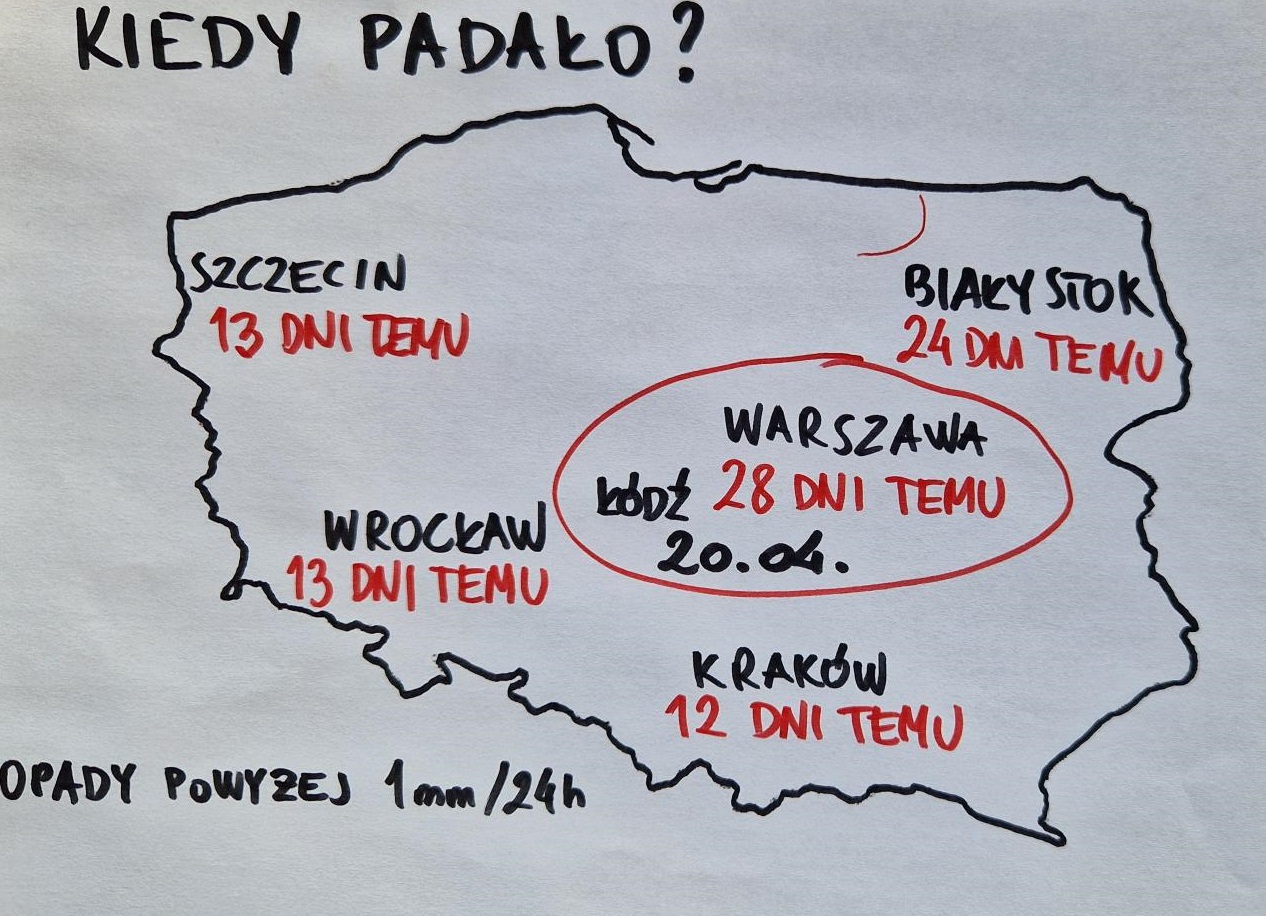 KIEDY PADAŁO?
SZCZECIN
13 DNI TEMU
BIAŁYSTOK
24 DNI TEMU
WARSZAWA
ŁÓDŹ 28 DNI TEMU
20.04.
WROCŁAW
13 DNI TEMU
KRAKÓW
12 DNI TEMU
OPADY POWYŻEJ 1mm/24h